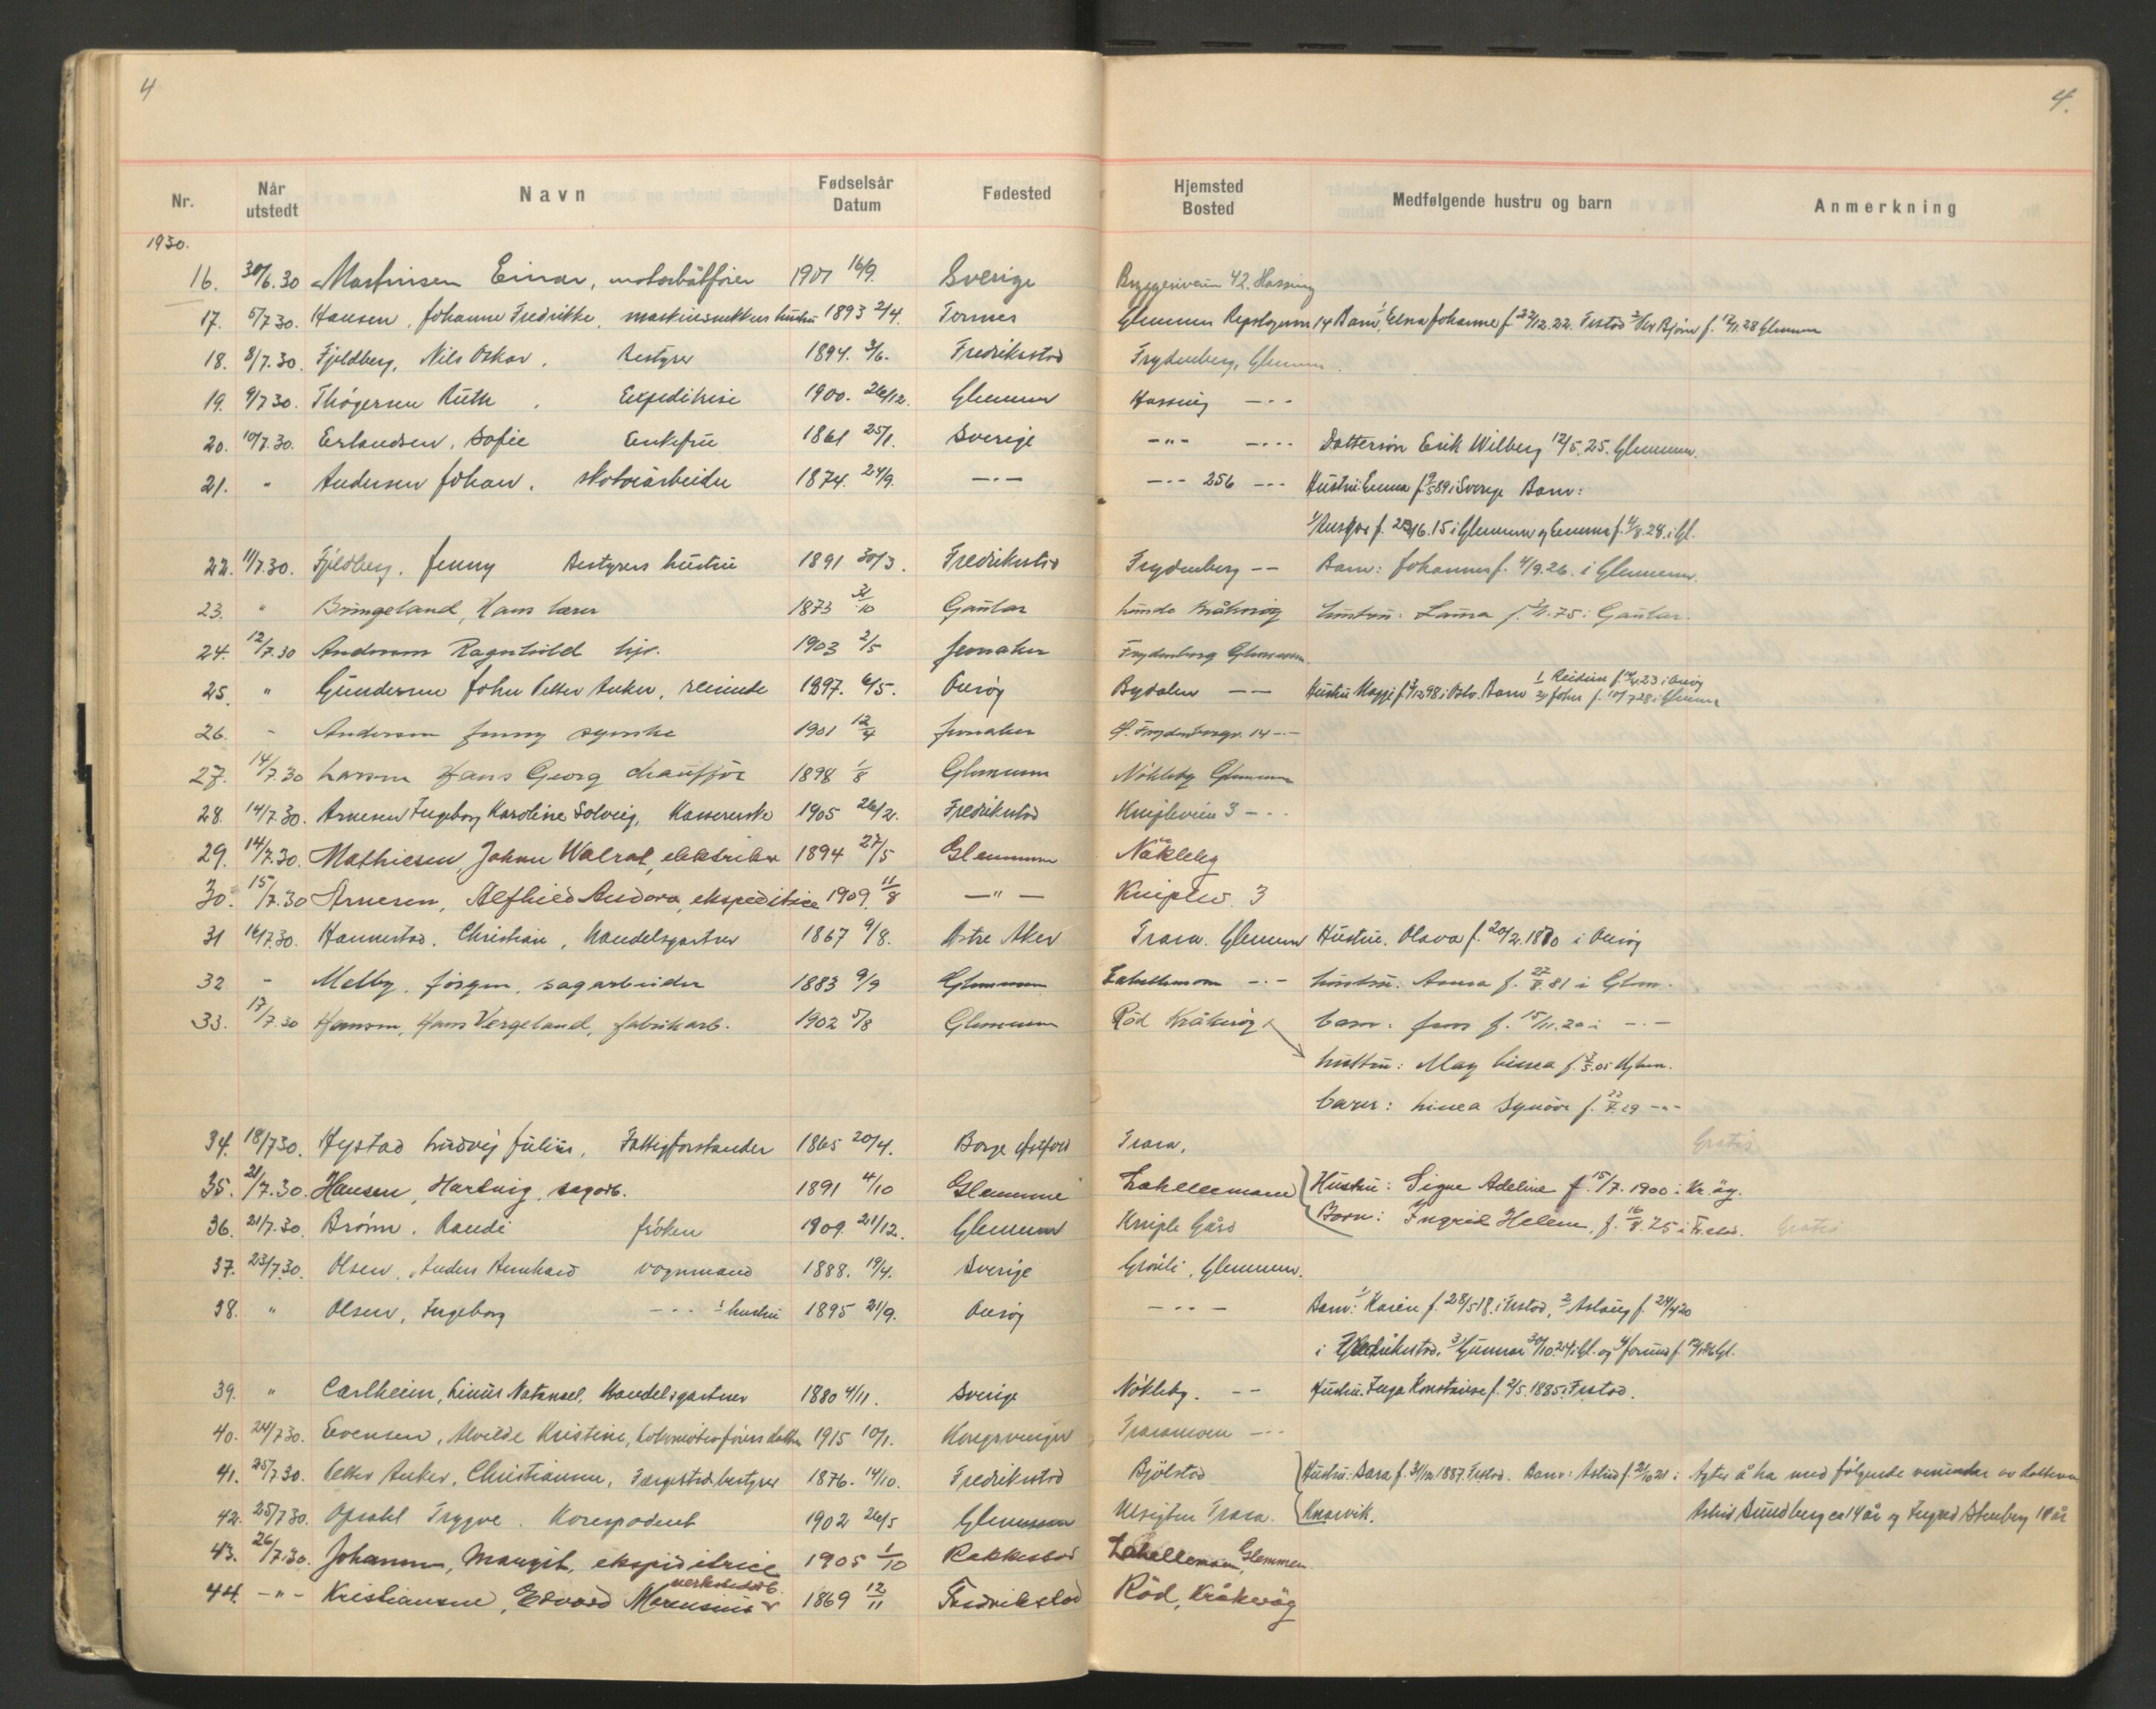 4
4.
Nr. Når utstedt Navn Fødselsår Datum Fødested Hjemsted Bosted Medfølgende hustru og barn Anmerkning
1930.
16. 30/6.30 Martinsen Einar, motorbåtfører 1901 16/9. Sverige Byggeriveien 42. Hassing
17. 5/7 30. Hansen, Johanne Fredrikke, maskinsnekkers hustru 1893 2/4. Glemmen 14 Barn, 1/ Elna Johanne f. 22/12.22. Frstad 2/ Bjørn f. 28 Glemmen
18. 8/7.30. Fjeldberg, Nils Oskar, Bestyrer 1894. 3/6. Fredriksstad Frydenberg, Glemmen.
19. 9/7 30. Thøgersen Ruth, Expeditrise 1900. 26/12. Glemmen Hassing -"-
20. 10/7.30. Erlandsen, Sofie Enkefrue 1861 25/1. Sverige -"- -"- Dattersøn Erik Wilberg 12/5.25. Glemmen.
21. " Andersen Johan, skotøiarbeider 1874. 24/9. -"- -"- 256 -"- Hustru: Emma f. 9/5 89 i Sverige Barn:
f. 15 i Glemmen og f. 4/8.28. i Gl.
22. 11/7.30. Fjeldberg, Jenny Bestyrers hustru 1891 30/3. Fredriksstad Frydenberg -"- Barn: Johannes f. 4/9.26. i Glemmen.
23. " Bringeland, Hans lærer 1873 31/10 Gaular Lunde Kråkerøy hustru: Laura f. 75 i Gaular.
24. 12/7.30 Andersen Ragnhild hjv. 1903 2/5 Jevnaker Frydenberg Glemmen.
25. " Gundersen John Petter Anker, reisende 1897. 6/5. Onsøy Bydalen -"- Hustru Maggi f. 3/12 98 i Oslo. Barn 1/ Reidun f. 23 i Onsøy
2/ John f. 10/7 28 i Glemmen
26. - Andersen Jenny syerske 1901 12/4 Jevnaker 14 -"-
27. 14/7.30 Larsen Hans Georg chauffør 1898 1/8 Glemmen Nøkleby Glemmen
28. 14/7.30. Arnesen Ingeborg Karoline Solveig, Kassererske 1905 26/2. Fredrikstad Knipleveien 3 -"-
29. 14/7.30. Mathiesen, Johan Walrat, elektriker 1894 27/5 Glemmen Nøkleby
30. 15/7.30 Arnesen, Alfhild Andora, ekspeditrice 1909. 11/8 -"- Kniplev. 3
31 16/7.30. Hannestad, Christian, Handelsgartner 1867 9/8. Østre Aker Trara. Glemmen Hustru. Olava f. 20/2.1870 i Onsøy
32. - Melby, Jørgen, sagarbeider 1883 9/9 Glemmen Lahellemoen -"- hustru: Anna f. 27/8.81 i Glem.
33. 17/7.30 Hansen, Hans Vergeland, fabrikarb. 1902 5/8 Glemmen Rød Kråkerøy barn: Jens f. 15/11.20 i -"-
hustru: May Linea f. 3/5.05 Glem.
barn: Linea Synøve f. 29 -"-
34. 18/7 30. Hystad Ludvig Julius, Fattigforstander 1865 20/4. Borge Østfold Trara. Gratis
35. 21/7.30. Hansen, Hartvig, sagarb. 1891 4/10 Glemme Lahellemoen Hustru: Signe Adeline f. 15/7.1900 i Kr.øy.
Barn: Ingrid Helene, f. 16/8.25 i Fr.stad.
36. 21/7.30. Brønn, Randi frøken 1909. 21/12. Glemmen Kniple Gård Gratis
37. 23/7.30. Olsen, Anders Bernhard vognmand 1888. 19/4. Sverige Grønli, Glemmen.
38. " Olsen, Ingeborg -"- s hustru 1895 21/9. Onsøy -"- Barn: 1/ Karin f. 28/5 18. i Frstad, 2/ Aslaug f. 24/4 20
i Fredrikstad, 3/ Gunnar 30/10.24 i Gl. og 4/ Jorund f. 26 Gl.
39. " Carlheim, Linus Natanael, Handelsgartner 1880 4/11. Sverige Nøkleby. -"- Hustru. Inga Konstanse f. 2/5.1885 i Frstad.
40. 24/7 30. Evensen, Alvilde Kristine, Lokomotivførers datter 1915 10/1. Kongsvinger Traramoen -"-
41. 25/7.30. Petter Anker, Christiansen, Færgestedsbestyrer 1876. 14/10. Fredriksstad Bjølstad Hustru: Sara f. 31/12 1887. Frstad. Barn: Astrid f. 21/10 21 i Agter å ha med følgende veninder av datteren
Knarvik. Astrid Sundberg ca 14 år og Ingrid Stenberg 10 år
42. 25/7 30. Opsahl Trygve. Korespodent 1902 26/5 Glemmen Utsigten Trara.
43. 26/7.30. Johansen, Margit, ekspiditrice 1905 1/10 Rakkestad Lahellemoen, Glemmen.
44. -"- Kristiansen, Edvard Marensius verkstedarb. 1869 12/11 Fredrikstad Rød, Kråkerøy